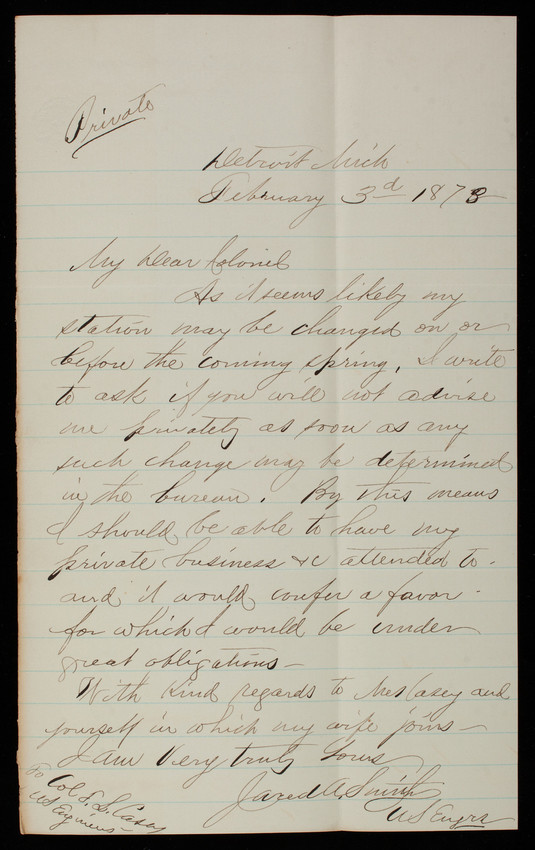 Private
Detroit Mich
February 3d 1873
My Dear Colonel
As it seems likely my
station may be changed on or
before the coming spring, I write
to ask if you will not advise
me privately as soon as any
such change may be determined
in the bureau. By this means
I should be able to have my
private business &c attended to.
and it would confer a favor -
for which I would be under
great obligations -
With kind regards to Mrs Casey and
yourself in which my wife joins -
I am Very truly Yours
Jared A. Smith
US Engrs
To Col T. L. Casey
US Engineers -